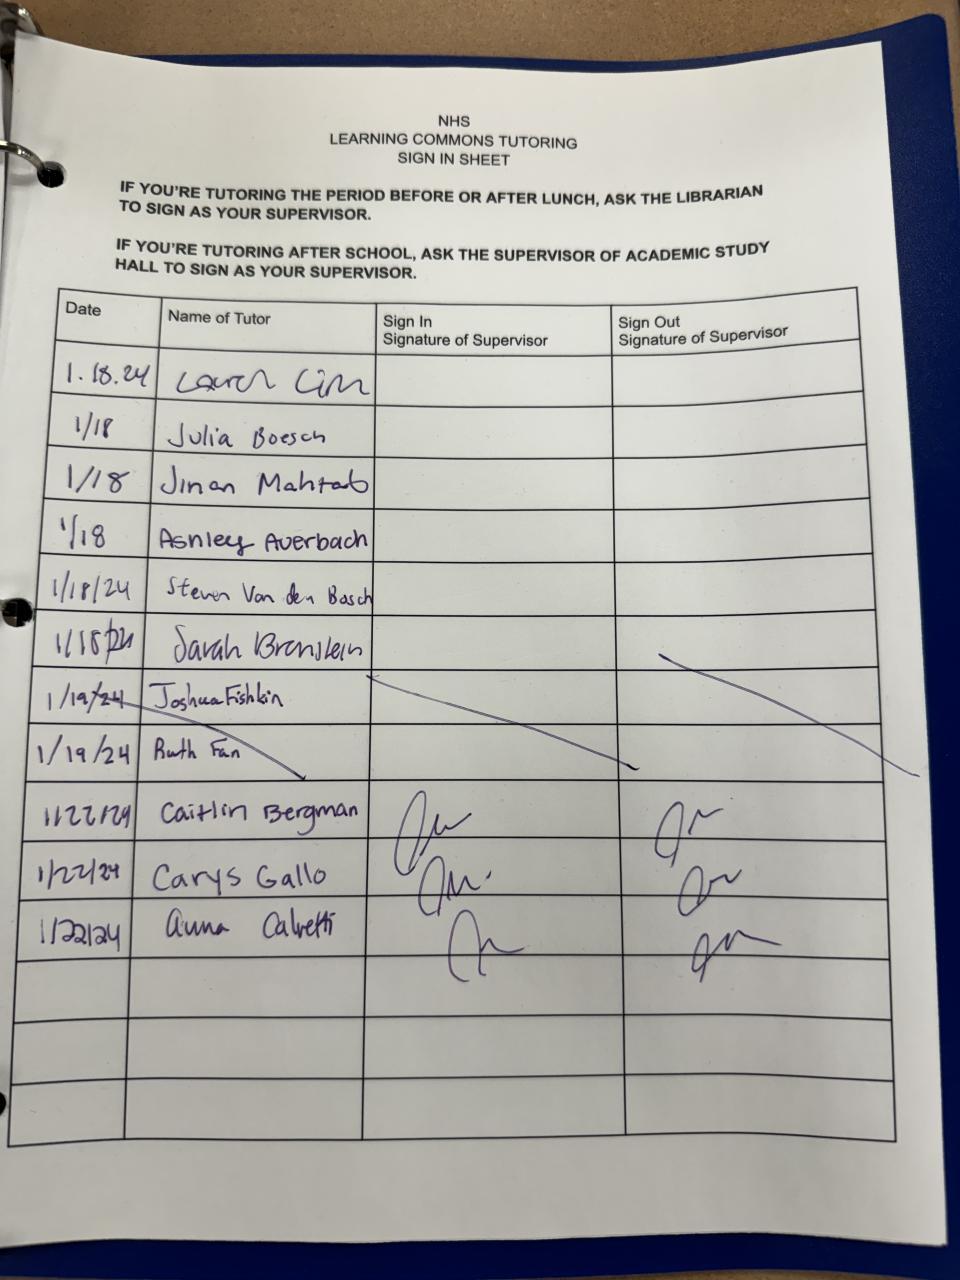 NHS
LEARNING COMMONS TUTORING
SIGN IN SHEET
IF YOU'RE TUTORING THE PERIOD BEFORE OR AFTER LUNCH, ASK THE LIBRARIAN
TO SIGN AS YOUR SUPERVISOR.
IF YOU'RE TUTORING AFTER SCHOOL, ASK THE SUPERVISOR OF ACADEMIC STUDY
HALL TO SIGN AS YOUR SUPERVISOR.
Date Name of Tutor Sign In Signature of Supervisor Sign Out Signature of Supervisor
1.18.24 Lauren
1/18 Julia Boesch
1/18 Jinan Mahtab
1/18 Ashley Averbach
1/18/24 Steven Van den Bosch
1/18/24 Sarah Brenstein
1/19/24 Joshua Fishkin
1/19/24 Ruth Fan
1/22/24 Caitlin Bergman
1/22/24 Carys Gallo
1/22/24 Anna Calvetti